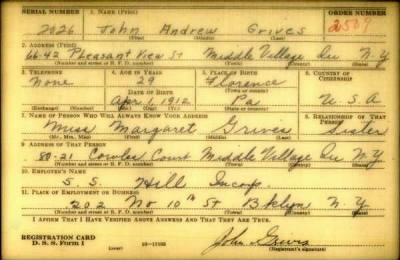 SERIAL NUMBER 1. NAME (Print) ORDER NUMBER
2026 John Andrew Grives 2507
(First) (Middle) (Last)
2. ADDRESS (Print)
66-42 Pleasant View St Middle Village Qu N.Y
(Number and street or R. F. D. number) (Town) (County) (State)
3. TELEPHONE 4. AGE IN YEARS 5. PLACE OF BIRTH 6. COUNTRY OF CITIZENSHIP
None 29 Florence
DATE OF BIRTH (Town or county)
Apr 1912 Pa U.S.A
(Exchange) (Number) (Mo.) (Day) (Yr.) (State or country)
7. NAME OF PERSON WHO WILL ALWAYS KNOW YOUR ADDRESS 8. RELATIONSHIP OF THAT PERSON
Miss Margaret Grives Sister
(Mr., Mrs., Miss) (First) (Middle) (Last)
9. ADDRESS OF THAT PERSON
80-21 Cowles Court Middle Village Qu N.Y
(Number and street or R. F. D. number) (Town) (County) (State)
10. EMPLOYER'S NAME
S. S. Hill Incorp.
11. PLACE OF EMPLOYMENT OR BUSINESS
202 No 10th St Bklyn N.Y
(Number and street or R. F. D. number) (Town) (County) (State)
I AFFIRM THAT I HAVE VERIFIED ABOVE ANSWERS AND THAT THEY ARE TRUE.
REGISTRATION CARD
D. S. S. Form 1 John Grives
(Registrant's signature)